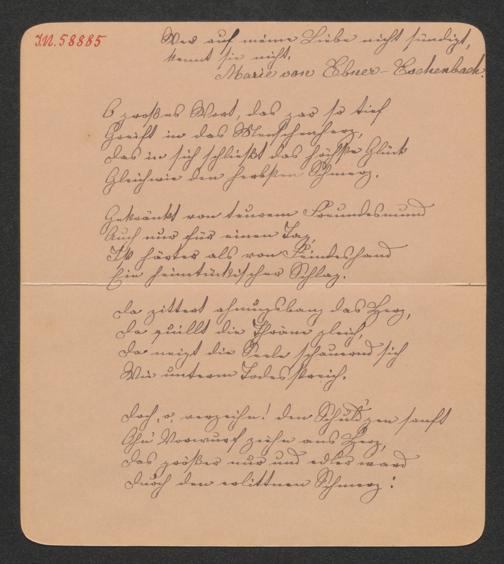 I.N. 58885
Wer auf meine Liebe nicht sündigt,
kennt sie nicht.
Marie von Ebner-Eschenbach.
O großes Wort, das gar so tief
Greift in das Menschenherz,
Das in sich schließt das höchste Glück
Gleichwie den herbsten Schmerz.
Gekränkt von teurem Freundesmund
Auch nur für einen Tag,
Ist härter als von Feindeshand
Ein heimtückischer Schlag.
Da zittert ahnungsbang das Herz,
Da quillt die Thräne gleich,
Da neigt die Seele schauernd sich
Wie unterm Todesstreich.
Doch, o, verzeihn! den Schuld'gen sanft
Ohn' Vorwurf ziehn ans Herz,
Das größer nur und edler ward
Durch den erlittnen Schmerz!